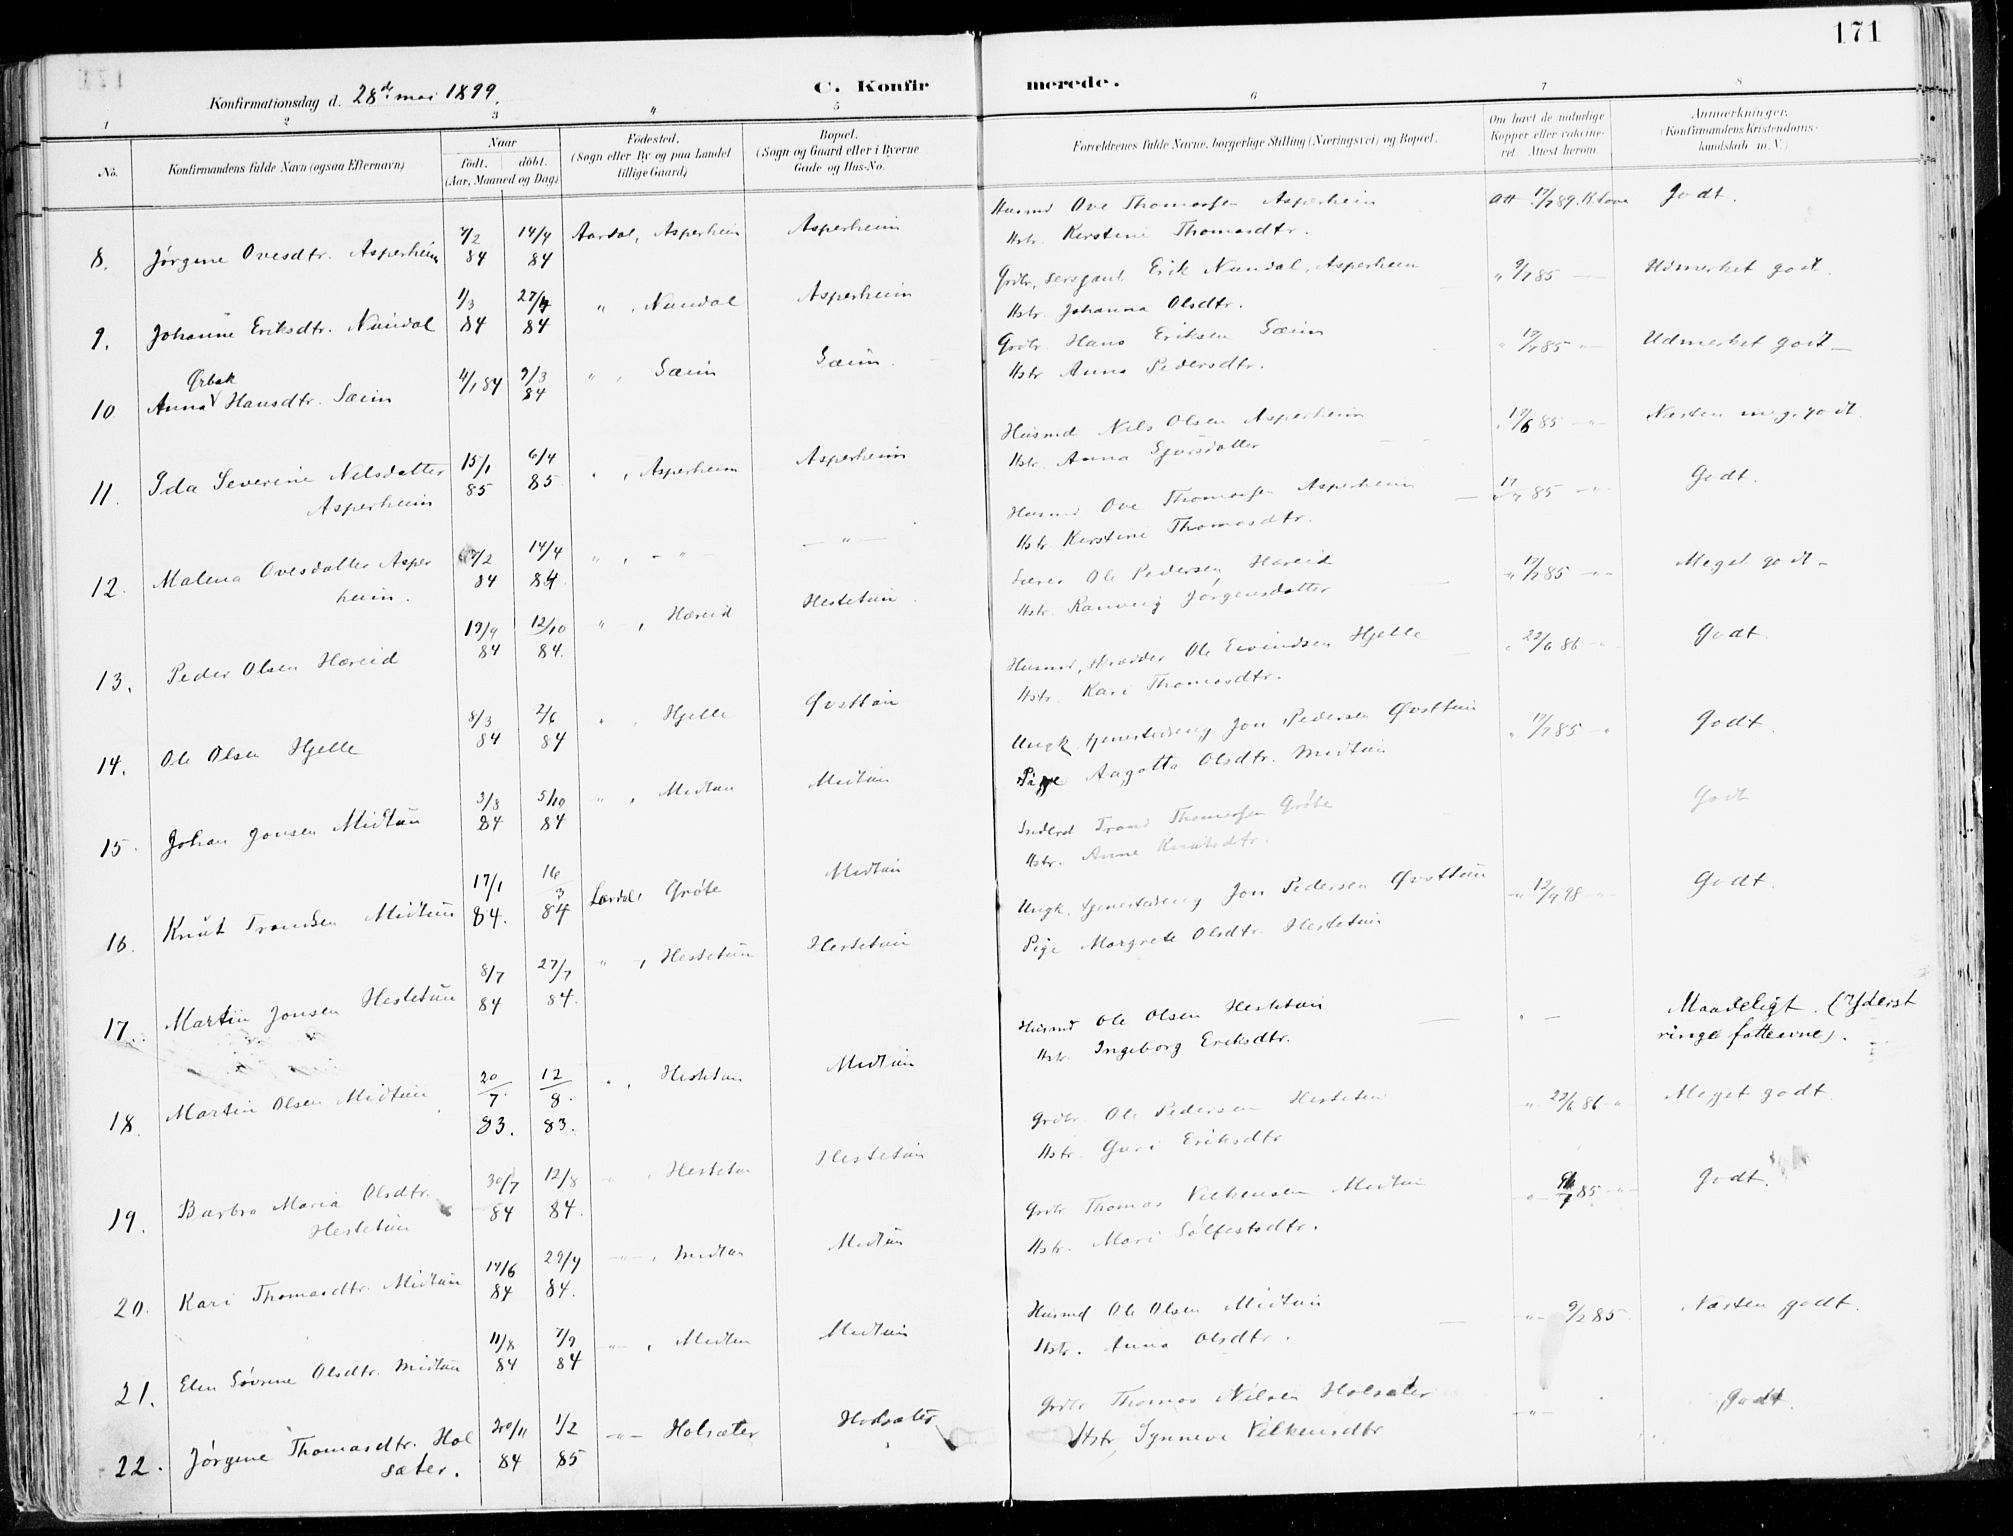 171
Konfirmationsdag d. 28de mai 1899.
C. Konfirmerede.
1 2 3 4 5 6 7 8
No. Konfirmandens fulde Navn (ogsaa Efternavn) Naar født. døbt. (Aar, Maaned og Dag) Fødested. (Sogn eller By og paa Landet tillige Gaard) Bopæl. (Sogn og Gaard eller i Byerne Gade og Hus-No. Forældrenes fulde Navne, borgerlige Stilling (Næringsvei) og Bopæl. Om havt de naturlige Kopper eller vakcineret. Attest herom. Anmærkninger. (Konfirmandens Kristendomskundskab m.V.)
8. Jørgine Ovesdtr. Asperheim 7/2 84 14/4 84 Aardal, Asperheim Asperheim
Husmd Ove Thomassen Asperheim att 17/7 89. Klove Godt.
Hstr. Kerstine Thomasdtr.
9. Johanne Eriksdtr. Nundal 1/3 84 27/4 84 " , Nundal Asperheim
Grdbr, sersgant Erik Nundal, Asperheim " 9/7 85 — Udmerket godt.
Hstr. Johanna Olsdtr.
10 Anna Ørbak Hansdtr. Sæim 11/1 84 9/3 84 " , Sæim Sæim.
Grdbr. Hans Eriksen Sæim " 17/7 85 " Udmerket godt
Hstr Anna Pedersdtr.
11. Ida Severine Nilsdatter Asperheim 15/1 85 6/4 85 " , Asperheim Asperheim
Husmd Nils Olsen Asperheim 85 Næsten meg. godt.
Hstr. Anna Sjursdatter
12. Malena Ovesdatter Asperheim. 7/2 84 14/4 84 " , — " — — " —
Husmd Ove Thomassen Asperheim 17/7 85 — Godt.
Hstr Kerstine Thomasdtr.
13. Peder Olsen Hæreid 19/9 84 12/10 84. " , Hæreid Hestetun.
Lærer Ole Pedersen Hæreid " 17/7 85 " Meget godt
Hstr. Ranveig Jørgensdatter
14. Ole Olsen Hjelle 8/3 84 2/6 84 " , Hjelle Øvsttun
Husmd, skrædder Ole Eivindsen Hjelle " 22/6 86 " Godt.
Hstr. Kari Thomasdtr.
15. Johan Jonsen Midtun 3/8 84 5/10 84 " , Midtun Midtun
Ungk. tjenestedreng Jon Pedersen Øvsttun " 17/7 85 " Godt.
Pige Aagotta Olsdtr. Midtun
16. Knut Trondsen Midtun 17/1 84. 16/3 84 Lærdal, Grøte Midtun
Inderst Trond Thomassen Grøte Godt
Hstr. Anne Knutsdtr.
17. Martin Jonsen Hestetun 8/7 84 27/7 84. " , Hestetun Hestetun
Ungk. tjenestedreng Jon Pedersen Øvsttun " 12/9 98 " Godt.
Pige Margrete Olsdtr. Hestetun
18. Martin Olsen Midtun 20/7. 83. 12/8. 83. " , Hestetun Midtun
Husmd Ole Olsen Hestetun " — Maadeligt. (Yderst ringe fatteevne).
Hstr. Ingeborg Eriksdtr.
19. Barbra Maria Olsdtr. Hestetun 30/7 84 12/8 84. " , Hestetun Hestetun
Grdbr. Ole Pedersen Hestetun " 22/6 86 " Meget godt.
Hstr. Guri Eriksdtr
20. Kari Thomasdtr. Midtun 14/6 84 84. " , Midtun Midtun
Grdbr Thomas Vilkensen Midtun 85 Godt.
Hstr. Mari Sølfestsdtr.
21. Elen Søvrine Olsdtr. Midtun 11/8 84 7/9 84 " , Midtun Midtun
Husmd Ole Olsen Midtun " 9/2 85. Næsten godt.
Hstr. Anna Olsdtr.
22. Jørgine Thomasdtr. Holsæter. 20/11 84 1/2 85 " Holsæter Holsæter
Grdbr Thomas Nilsen Holsæter " Godt.
Hstr, Synneve Vilkensdtr